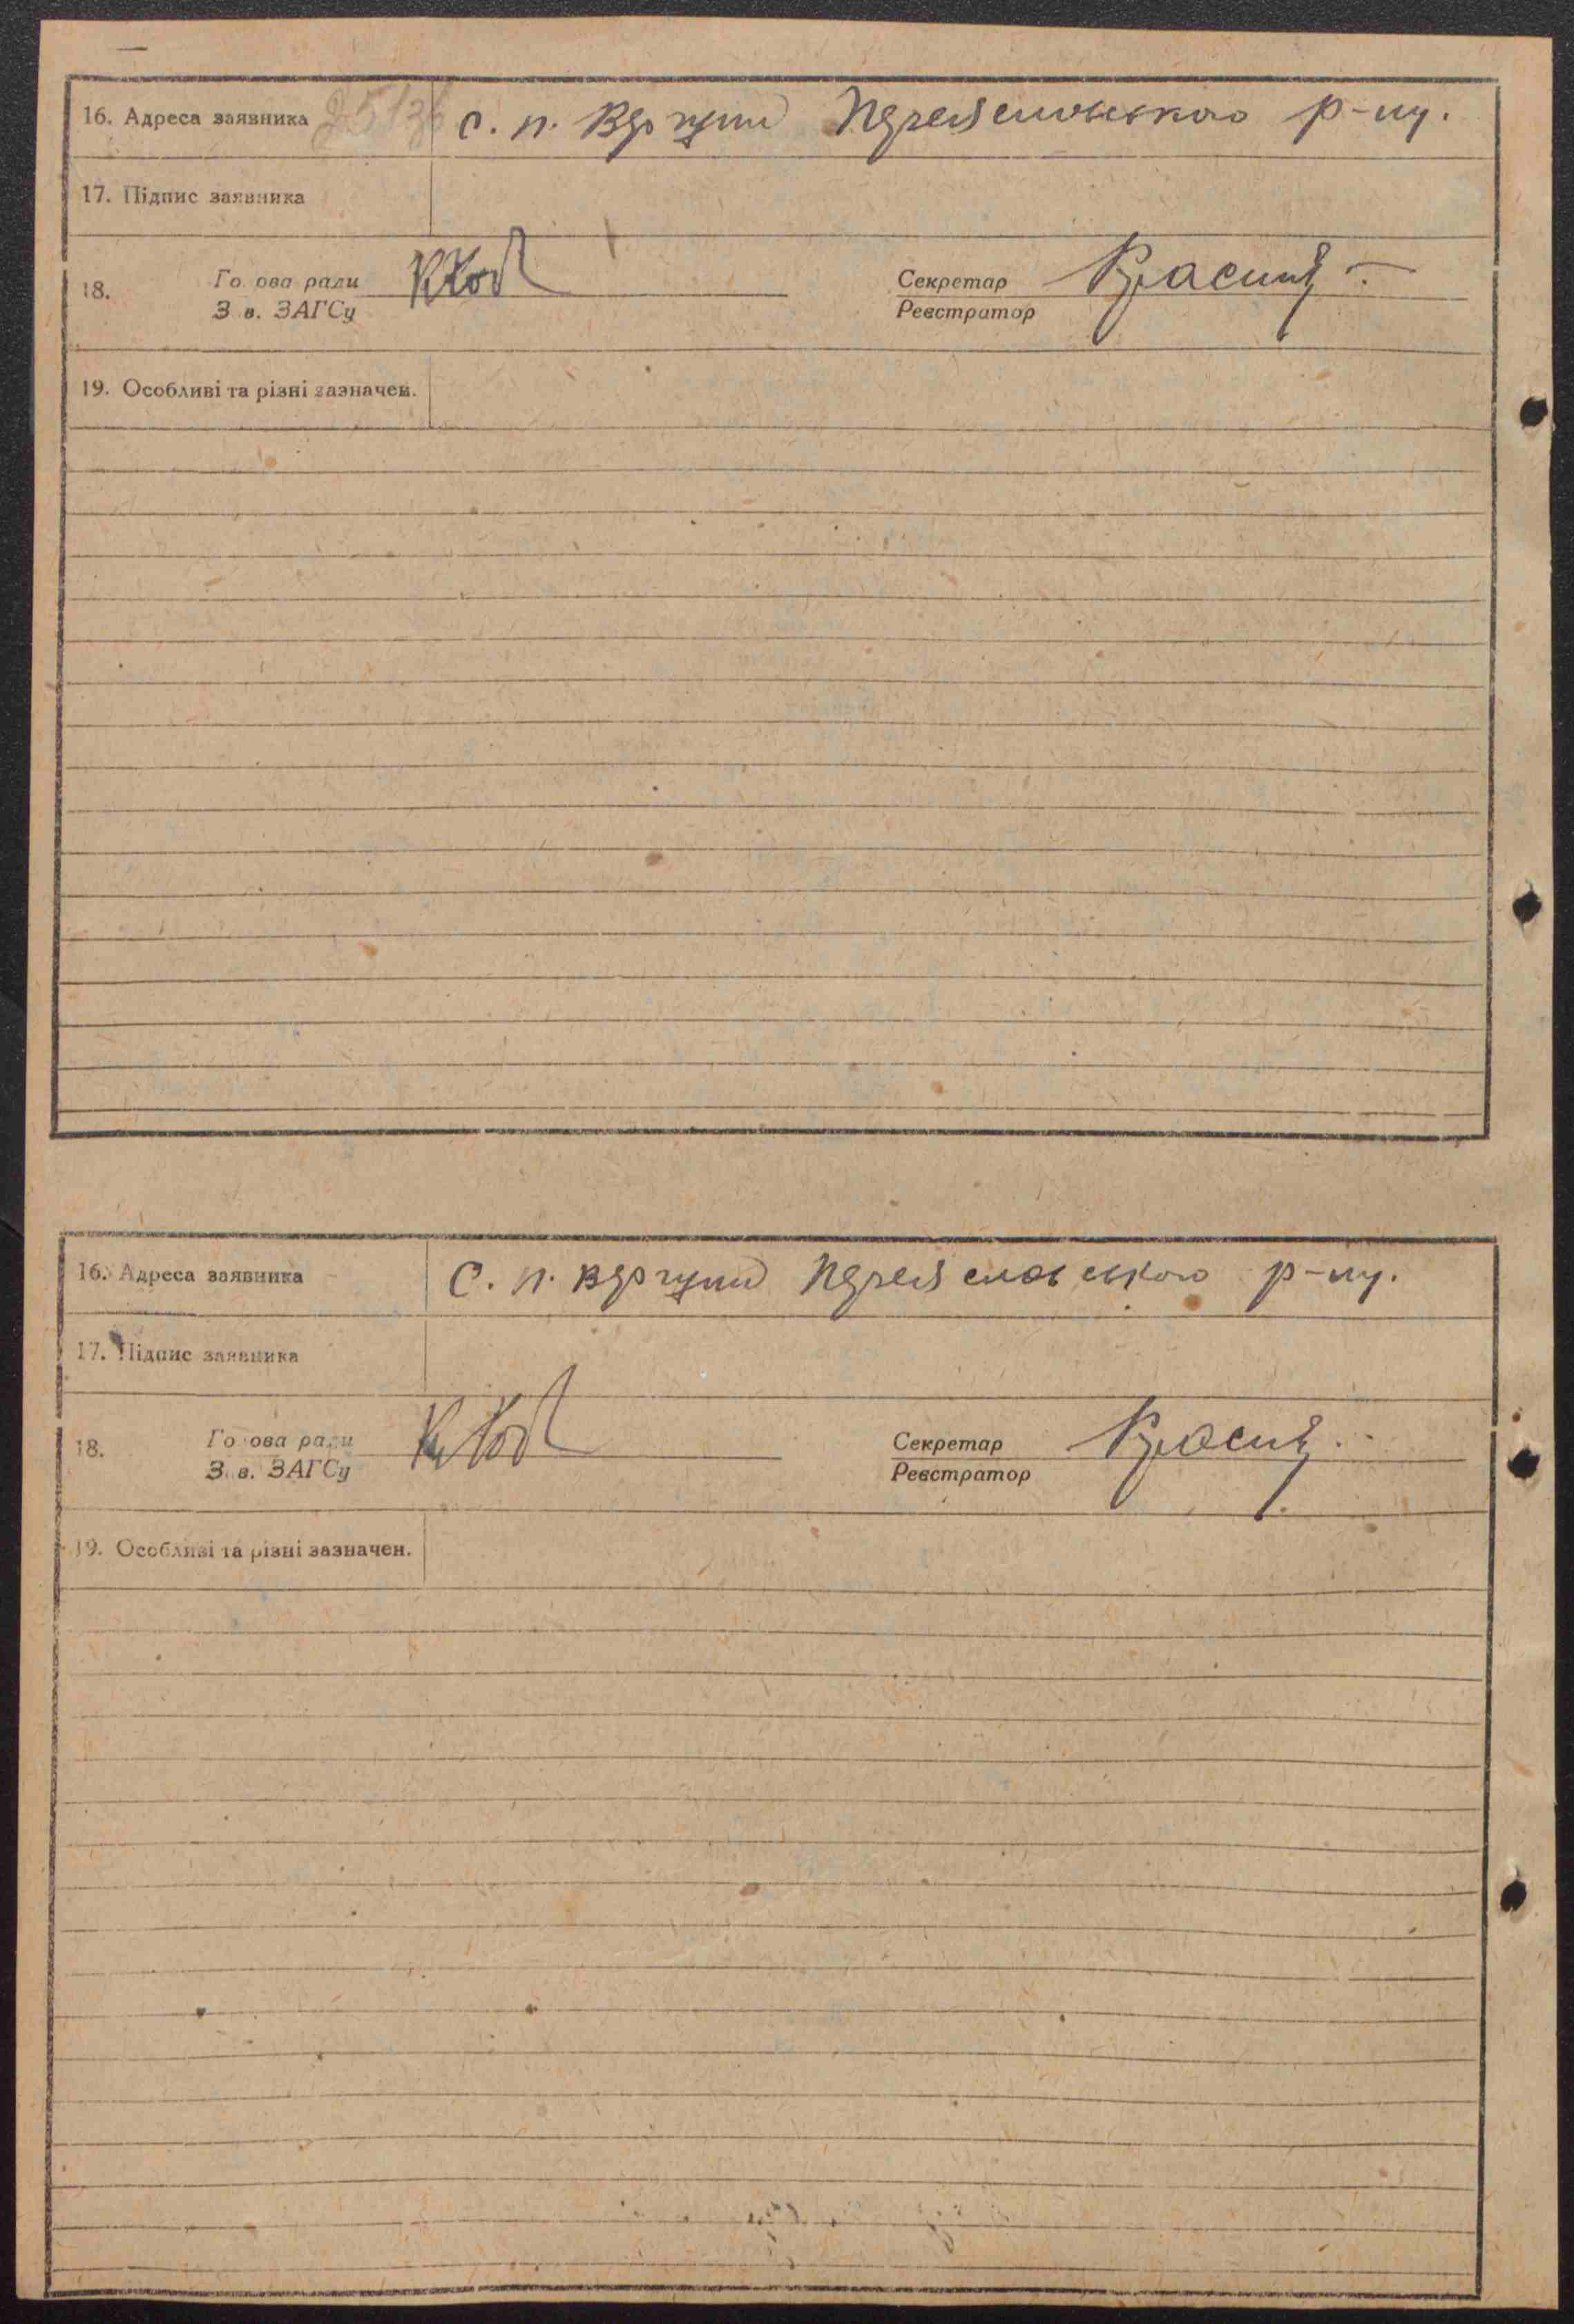 16. Адреса заявника с. п. Вергуни Переяславського р-ну.
17. Підпис заявника
18. Го ова ради Секретар
З в. ЗАГСу Реєстратор
19. Особливі та різні зазначен.
16. Адреса заявника С. п. Вергуни Переяславського р-ну.
17. Підпис заявника
18. Го ова ради Секретар
З в. ЗАГСу Реєстратор
19. Особливі та різні зазначен.